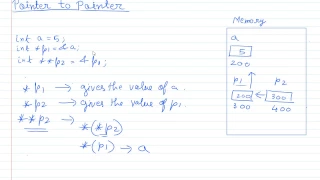 Pointer to Pointer
int a = 5;
int *p1 = &a;
int **p2 = &p1;
*p1 → gives the value of a.
*p2 → gives the value of p1.
**p2 → *(*p2)
*(p1) → a
Memory
a
5
200
p1 p2
200 300
300 400